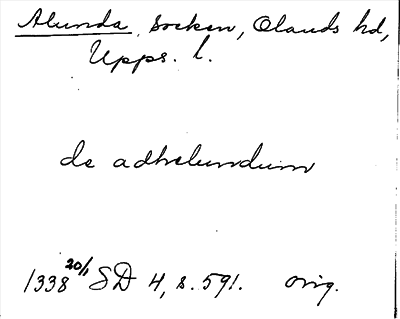 Alunda, socken, Olands hd,
Upps. l.
de adhelundum
1338 20/1 SD 4, s. 591. orig.